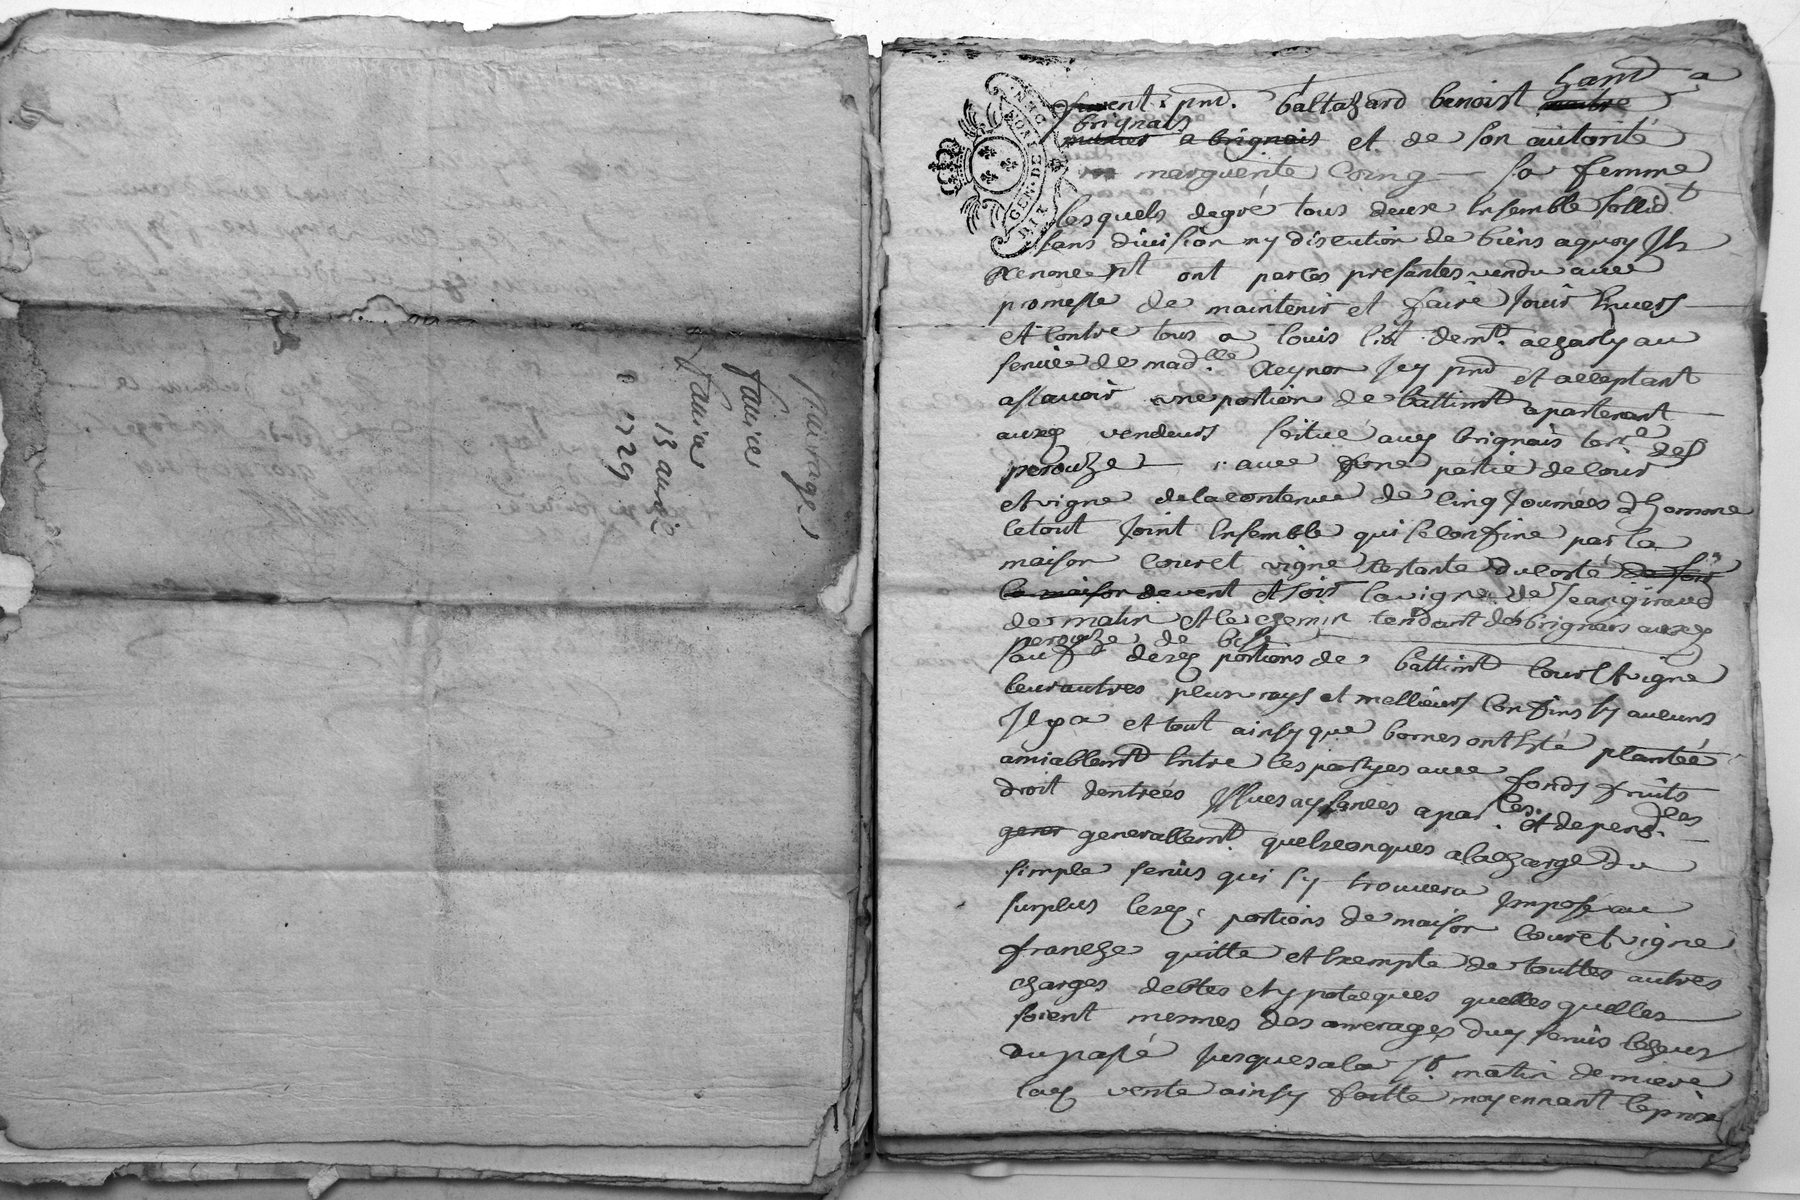 mariage
faurie
faurie
13 avril
1729
GEN. DE LYON
DIX DEN.
furent pnt. baltazard benoist habt a
brignais
mitier a brignais et de son autorité
marguerite Coing sa femme
lesquels degré tous deux Ensemble sollidt
sans division ny discution de biens aquoy Ils
Renoncent ont par ces presantes vendu avec
promesse de maintenir et faire Jouir Envers
et Contre tous a Louis demt. a charly au
service de madlle. Reynon Icy pnt et acceptant
assavoir une portion de battimt apartenant
auxq vendeurs scitué auq brignais terre des
perouze avec une partie de cour
et vigne de la contenue de Cinq Journées d'homme
le tout Joint Ensemble qui se confine par la
maison Cour et vigne restante du costé de soir
la maison devent et soir la vigne de Jean giraud
de matin et le chemin tendant de brignais auxq
perouze de bise
sauf dezq portions de battimt Cour et vigne
leur autres plus vrays et mellieurs Confins sy aucuns
Il y a et tout ainsy que bornes ont Esté plantée
amiablemt Entre les partyes avec fonds fruits
droit dentrées Issues aysances apar.ces. et depend.ces
gener generallemt. quelzconques a la charge du
simple servis qui sy trouvera Imposé au
surplus lesq. portions de maison Cour et vigne
franche quitte et Exempte de touttes autres
charges debtes et ypotecques quelles quelles
soient mesmes des arrerages duq servis Echeus
du passé Jusques a la St. matin derniere
laq vente ainsy faitte moyennant le prix